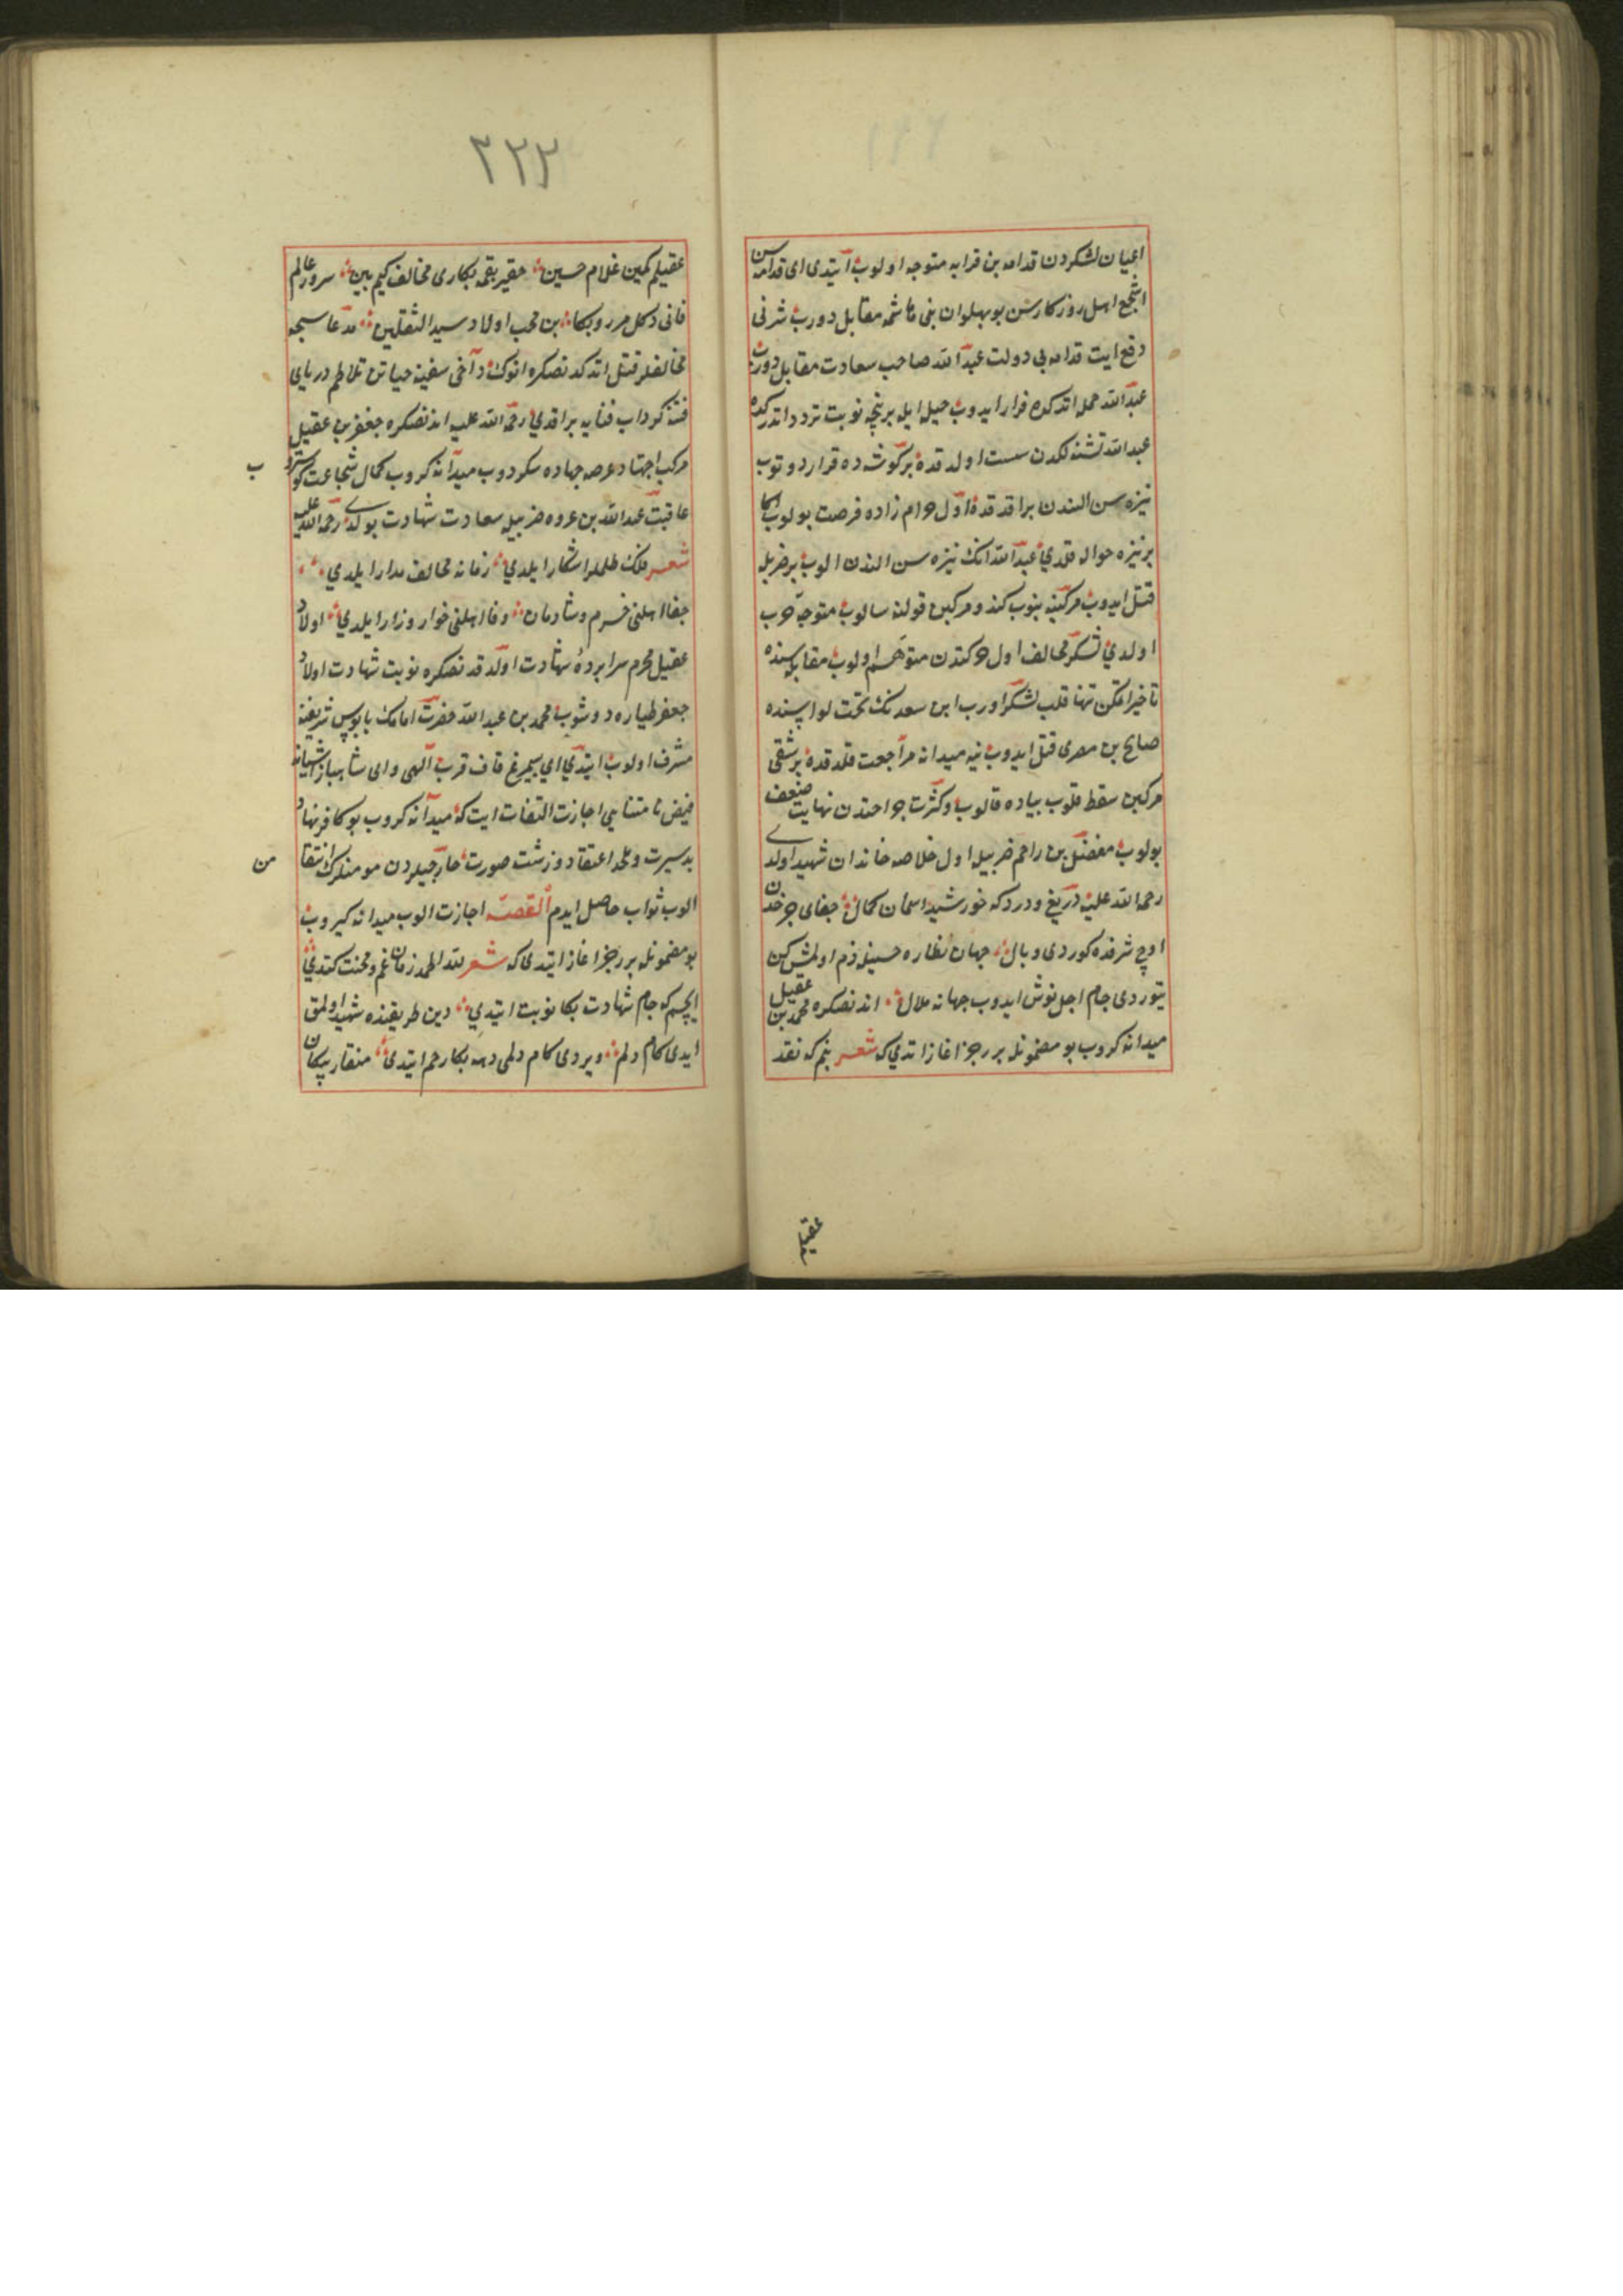 اعیان لشکردن قدامه بن قرایه متوجه اولوب ایتدی ای قدامه سن
اشجع اهل روزکارسن بو پهلوان بنی هاشمه مقابل دورب شرنی
دفع ایت قدامه بی دولت عبدالله صاحب سعادت مقابل دورب
عبدالله حمله اتدکده فرار ایدوب حیل ایله بر نچه نوبت تردد اتدرکده
عبدالله تشنه لکدن سست اولدقده بر کوشه ده قرار دوتوب
نیزه سن الندن براقدقده اول حرام زاده فرصت بولوب اکا
بر نیزه حواله قلدی عبدالله انک نیزه سن الندن الوب بر ضربله
قتل ایدوب مرکبنه بنوب کندو مرکبن قولنه سالوب متوجه حرب
اولدی لشکر مخالف اول حرکتدن متوهم اولوب مقابله سنده
تاخیر اتمکن تنها قلب لشکر اورب ابن سعدنک تحت لواسنده
صالح بن مصری قتل ایدوب ینه میدانه مراجعت قلدقده بر شقی
مرکبن سقط قلوب پیاده قالوب وکثرت جراحتدن نهایت ضعف
بولوب مفضل بن راحم ضربیله اول خلاصه خاندان شهید اولدی
رحمة الله علیه دریغ ودرد که خورشید اسمان کمال جفای چرخدن
اوج شرفده کوردی وبال جهان نظاره حسنیله خرم اولمش کن
یتوردی جام اجل نوش ایدوب جهانه ملال اندنصکره محمد بن عقیل
میدانه کروب بو مضمونله بر رجز اغاز اتدی که شعر بنم که نقد
عقیله
٣٢٢
عقیلم کمین غلام حسین حقیر بقمه بکا ری مخالف کیم بین سرور عالم
فانی دکل مرروبکا بن محب اولاد سید الثقلین مدعاسیجه
مخالفلر قتل اتدکدنصکره انوک دآخی سفینه حیاتن تلاطم دریای
فتنه کرداب فنایه براقدی رحمة الله علیه اندنصکره جعفر بن عقیل
مرکب اجتهاد عرصه جهاده سکردوب میدانه کروب کمال شجاعت کوستروب
عاقبت عبدالله بن عروه ضربیله سعادت شهادت بولدی رحمة الله علیه
شعر فلک ظلملر اشکار ایلدی زمانه مخالف مدار ایلدی
جفا اهلنی خرم وشادمان وفا اهلنی خوار وزار ایلدی اولاد
عقیل محرم سراپرده شهادت اولدقدنصکره نوبت شهادت اولاد
جعفر طیاره دوشوب محمد بن عبدالله حضرت امامک پابوس شریفنه
مشرف اولوب ایتدی ای سیمرغ قاف قرب الهی وای شاهباز اشیانه
فیض نامتناهی اجازت التفات ایت که میدانه کروب بو کافر نهاد
بد سیرت وملحد اعتقاد وزشت صورت خارجیلردن مومنلرک انتقامن
الوب ثواب حاصل ایدم القصه اجازت الوب میدانه کیروب
بو مضمونله بر رجز اغاز ایتدی که شعر لله الحمد زمان غم ومحنت کتدی
ایچسم که جام شهادت بکا نوبت ایتدی دین طریقنده شهید اولمق
ایدی کام دلم ویردی کام دلمی دهر بکا رحم ایتدی منقار پیکان